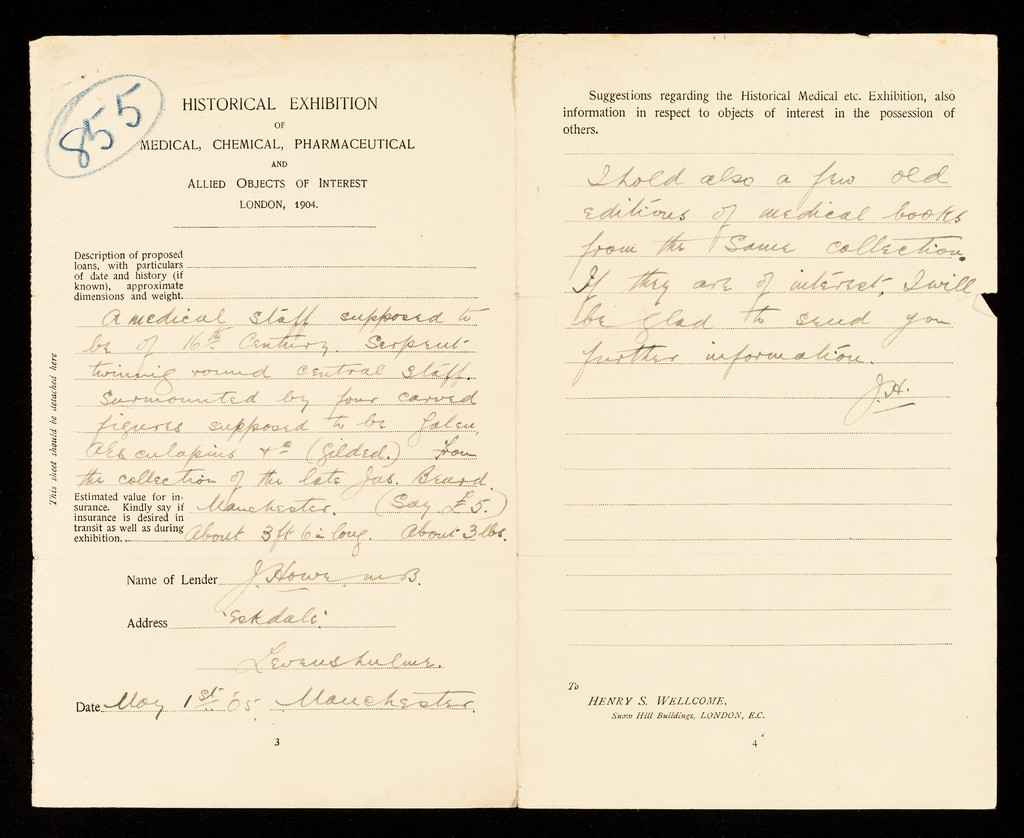 855
HISTORICAL EXHIBITION
OF
MEDICAL, CHEMICAL, PHARMACEUTICAL
AND
ALLIED OBJECTS OF INTEREST
LONDON, 1904.
Description of proposed
loans, with particulars
of date and history (if
known), approximate
dimensions and weight.
A medical staff supposed to
be of 16th Century. Serpent
twining round central staff.
Surmounted by four carved
figures supposed to be Galen,
Aesculapius &c (gilded.) From
the collection of the late Jas. Beard.
Estimated value for in-
surance. Kindly say if
insurance is desired in
transit as well as during
exhibition.
Manchester. (Say £5.)
About 3 ft 6 in long. About 3 lbs.
Name of Lender J. Howe M.B.
Address 'Eskdale'
Levenshulme.
Date May 1st '05. Manchester.
3
This sheet should be detached here
Suggestions regarding the Historical Medical etc. Exhibition, also
information in respect to objects of interest in the possession of
others.
I hold also a few old
editions of medical books
from the same collection.
If they are of interest, I will
be glad to send you
further information.
J.H.
To
HENRY S. WELLCOME,
Snow Hill Buildings, LONDON, E.C.
4